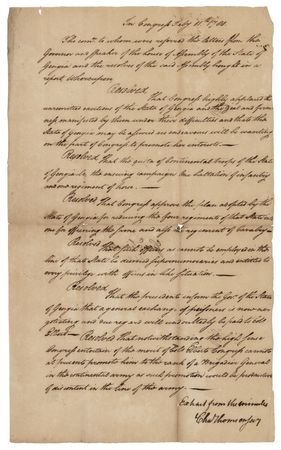 In Congress Feby 11th 1780.
The com.ee to whom were referred the letters from the
Governor and Speaker of the house of Assembly of the State of
Georgia and the resolves of the said Assembly brought in a
report Whereupon
Resolved
That Congress highly applaud the
unremitted exertions of the State of Georgia and the zeal and firm-
ness manifested by them under their difficulties and that the
State of Georgia may be assured no endeavours will be wanting
on the part of Congress to promote her interests.—
Resolved That the quota of Continental troops of the State
of Georgia for the ensuing campaign be one battalion of infantry
and a regiment of horse.—
Resolved That Congress approve the plan adopted by the
State of Georgia for reducing the four regiments of that State into
one for officering the same and also a regiment of Cavalry.—
Resolved
That such officers as cannot be employed in the
line of that State be deemed supernumeraries and entitled to
every privilege with officers in like situation.—
Resolved
That the president inform the Gov.r of the State
of Georgia that a general exchange of prisoners is now ne-
gotiating and due regard will undoubtedly be paid to Col.o
Elbert— Resolved That notwithstanding the high sense
Congress entertain of the merit of Col.o Elbert Congress cannot
at present promote him to the rank of a Brigadier General
in the continental army as such promotion would be productive
of discontent in the line of this army.—
Extract from the minutes
Chas Thomson secy